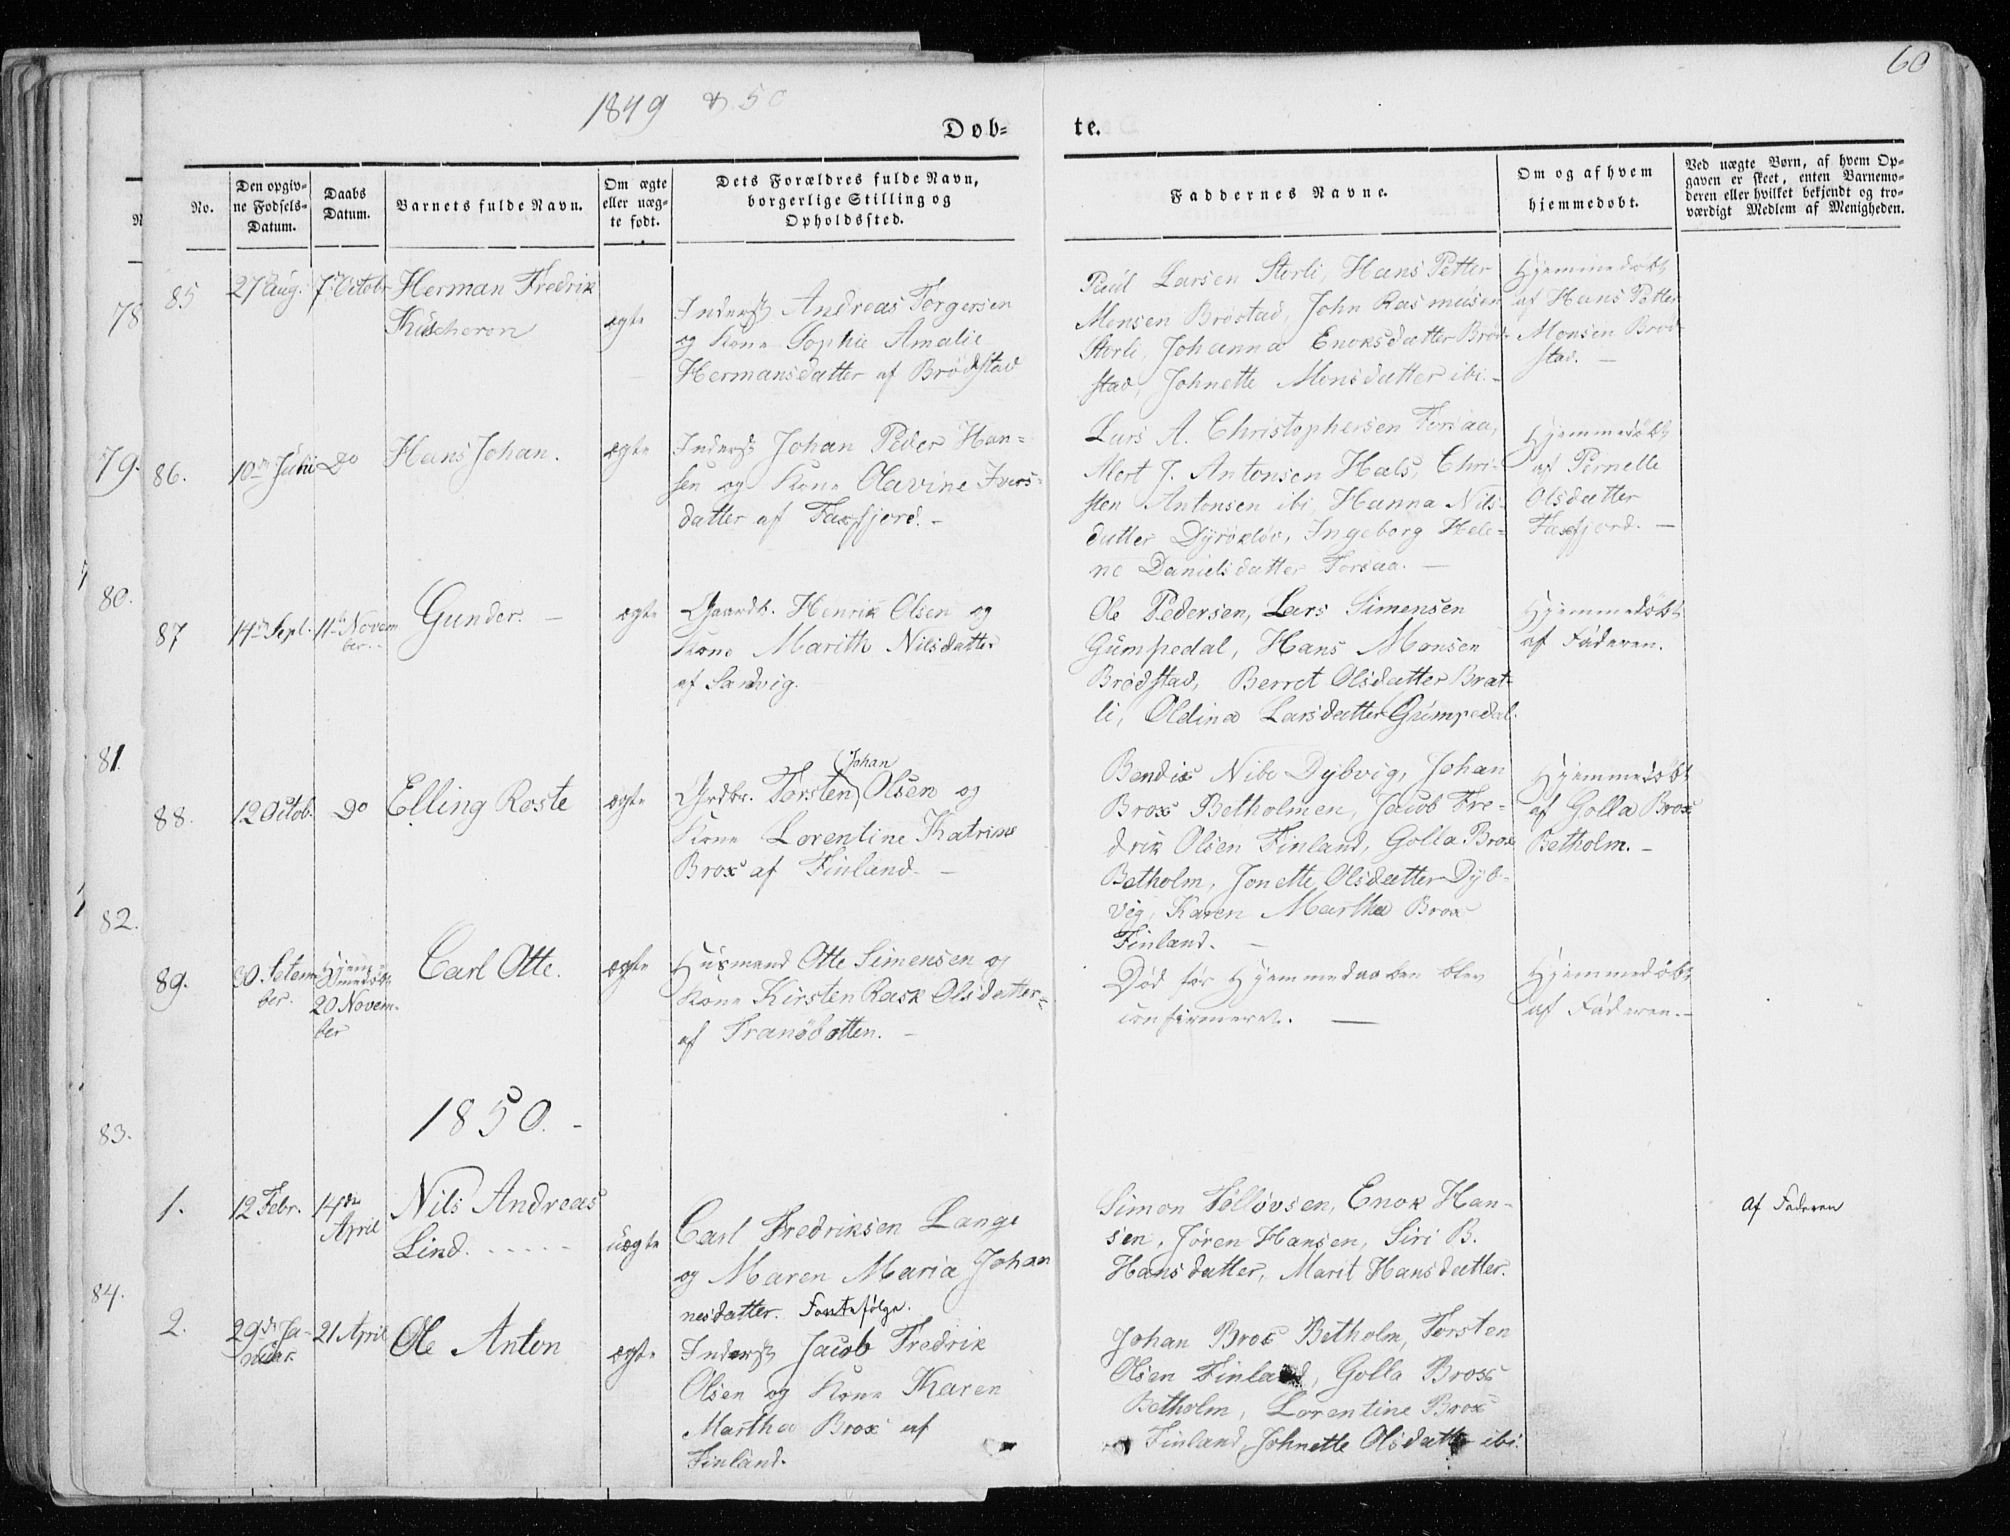 60
1849 & 50
Døb-
te.
No.
Den opgiv-
ne Fødsels-
Datum.
Daabs
Datum.
Barnets fulde Navn.
Om ægte
eller uæg-
te født.
Dets Forældres fulde Navn,
borgerlige Stilling og
Opholdssted.
Faddernes Navne.
Om og af hvem
hjemmedøbt.
Ved uægte Børn, af hvem Op-
gaven er skeet, enten Barnemo-
deren eller hvilket bekjendt og tro-
værdigt Medlem af Menigheden.
78
79.
80.
81.
82.
83.
84.
85
27 Aug.
7de Octobr
Herman Fredrik
ægte
Inderst Andreas Torgersen
og Kone Sophie Amalie
Hermansdatter af Brødstad
Paul Larsen Storli, Hans Petter
Monsen Brøstad, John Rasmusen
Storli, Johanna Enoksdatter Brød-
stad, Johnette Monsdatter ibi. -
Hjemmedøbt
af Hans Petter
Monsen Brød-
stad. -
86.
10de Juli
Do
Hans Johan.
ægte
Inderst Johan Peder Han-
sen og Kone Olavine Ivers-
datter af Faxfjord. -
Lars A. Christophersen Forsaa,
Mort J. Antonsen Hals, Chri-
sten Antonsen ibi, Hanna Nils-
datter Dyrøkløv, Ingeborg Hele-
ne Danielsdatter Forsaa. -
Hjemmedøbt
af Pernelle
Olsdatter
Faxfjord. -
87
14de Sept.
11te Novem
ber. -
Gunder. -
ægte
Gaardb. Henrik Olsen og
Kone Marith Nilsdatter
af Sandvig.
Ole Pedersen, Lars Simensen
Gumpedal, Hans Monsen
Brødstad, Berret Olsdatter Brat-
li, Oldina Larsdatter Gumpedal.
Hjemmedøbt
af Faderen.
88.
12 Octob.
Do
Elling Roste
ægte
Johan
Grdbr. Torsten Olsen og
Kone Lorentine Katrine
Brox af Finland. -
Bendix Nibe Dybvig, Johan
Brox Betholmen, Jacob Fre-
drik Olsen Finland, Golla Brox
Betholm, Jonette Olsdatter Dyb-
vig, Karen Martha Brox
Finland. -
Hjemmedøbt
af Golla Brox
Betholm. -
89.
30.
ber.
Hjem-
medøbt
20 Novem-
ber
Carl Otte.
ægte
Husmand Otte Simensen og
Kone Kirsten Rask Olsdatter-
af Tranøbotten. -
Død før Hjemmedaaben blev
confirmeret. -
Hjemmedøbt
af Faderen. -
1850. -
1.
12 Febr.
14de
April
Nils Andreas
Lind. - - - - -
uægte
Carl Fredriksen Lange
og Maren Maria Johan
nesdatter.
Simon Tølløvsen, Enok Han-
sen, Jøren Hansen, Siri B.
Hansdatter, Marit Hansdatter.
Af Faderen
2.
29de Ja-
nuar
21 April
Ole Anton
ægte
Inderst Jacob Fredrik
Olsen og Kone Karen
Martha Brox af
Finland.
Johan Brox Betholm, Torsten
Olsen Finland, Golla Brox
Betholm, Lorentine Brox
Finland, Johnette Olsdatter ibi.